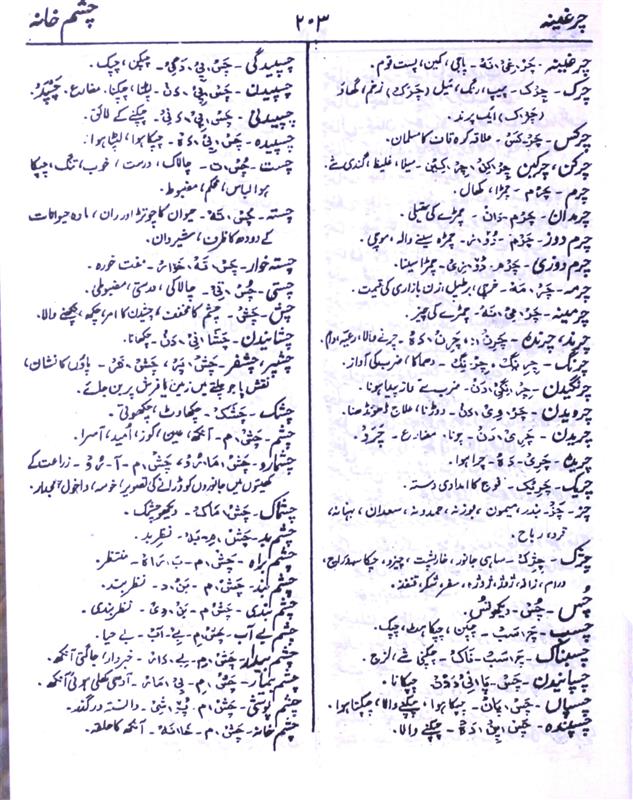 چرغینہ
۲۰۳
چشم خانہ
چرغینہ ۔ پاجی، کمین، پست قوم۔
چرک ۔ چِرْک ۔ پیپ، رنگ، میل (چَرْک) زخم، گھاؤ
(چَرَک) ایک پرند۔
چرکس ۔ چَرْکَسْ ۔ علاقہ کوہ قاف کا مسلمان۔
چرکن، چرکین ۔ میلا، غلیظ، گندی شے۔
چرم ۔ چَرْم ۔ چمڑا، کھال۔
چرمدان ۔ چَرْم، دَان ۔ چمڑے کی تھیلی۔
چرم دوز ۔ چَرْم ۔ دُوْز ۔ چمڑہ سینے والا، موچی۔
چرم دوزی ۔ چَرْم ۔ دُوْ، زِیْ ۔ چمڑا سینا۔
چرمہ ۔ چَرْ، مَہْ ۔ خرچی، زن بازاری کی قیمت۔
چرمینہ ۔ چَرْ، مِیْ، نَہْ ۔ چمڑے کی چیز۔
چرند، چرندہ ۔ چرنے والا،
چرنگ ۔ دھماکا، ضرب کی آواز۔
چرنگیدن ۔ ضرب سے آواز پیدا ہونا۔
چرویدن ۔ چَرْ، وِیْ، دَنْ ۔ دوڑنا، علاج ڈھونڈھنا۔
چریدن ۔ چَ، رِیْ، دَنْ ۔ چرنا۔ مضارع ۔ چرد۔
چریدہ ۔ چَ، رِیْ، دَہْ ۔ چرا ہوا۔
چریک ۔ چَرِیْک ۔ فوج کا امدادی دستہ۔
چز ۔ چَزْ ۔ بندر، میمون، بوزنہ، حمدونہ، سعدان،
قرد، رباح۔
چزک ۔ ساہی جانور، خارپشت،
چس ۔ چُسْ ۔ دیکھو
چسپ ۔ چَسْپْ ۔ چپکاہٹ، چپک۔
چسپناک ۔ چَسْپْ ۔ نَاکْ ۔ چپکتی شے، لزج۔
چسپانیدن ۔ چَسْ، پَا، نِیْ، دَنْ ۔ چپکانا۔
چسپاں ۔ چَسْ، پَانْ ۔ چپکا ہوا، چپکنے والا، چپکتا ہوا۔
چسپندہ ۔ چپکنے والا۔
چسپیدگی ۔ چَسْ، پِیْ، دَ، گِیْ ۔ چپکن، چپک۔
چسپیدن ۔ چَسْ، پِیْ، دَنْ ۔ لپٹنا، چپکنا ۔ مضارع ۔ چَسْپَدْ۔
چسپیدنی ۔ چَسْ، پِیْ، دَ، نِیْ ۔ چپکنے کے لائق۔
چسپیدہ ۔ چَسْ، پِیْ، دَہْ ۔ چپکا ہوا، لپٹا ہوا۔
چست ۔ چُسْ، ت ۔ چالاک، درست، خوب، تنگ، چپکا
ہوا لباس، محکم، مضبوط۔
چستہ ۔ چَسْ، تَہْ ۔ حیوان کا چوتڑ اور ران، مادہ حیوانات
کے دودھ کا ظرف، شیردان۔
چستہ خوار ۔ چَسْ، تَہْ، خَوَارْ ۔ مفت خورہ۔
چستی ۔ چُسْ، تِیْ ۔ چالاکی، درستی، مضبوطی۔
چش ۔ چَشْ ۔ چشم کا مخفف، چشیدن کا امر، چکھ، چکھنے والا۔
چشانیدن ۔ چَشَا، نِیْ، دَنْ ۔ چکھانا۔
پاؤں کا نشان،
نقش پا جو چلنے میں زمین یا فرش پر بن جائے۔
چشک ۔ چَشَکْ ۔ چکھاوٹ، چکھوتی۔
چشم ۔ چَشْ، م ۔ آنکھ، عین، امید، آسرا۔
چشمارو ۔ زراعت کے
کھیتوں میں جانوروں کو ڈرانے کی تصویر،
چشماک ۔ چَشْ، مَاکْ ۔ دیکھو چشمک۔
چشم بد ۔ چَشْ، مِ، بَدْ ۔ نظر بد۔
چشم براہ ۔ چَشْ، م ۔ بَ، رَاہْ ۔ منتظر۔
چشم بند ۔ چَشْ، م ۔ بَنْ، د ۔ نظر بند۔
چشم بندی ۔ چَشْ، م ۔ بَنْ، دِیْ ۔ نظر بندی۔
چشم بے آب ۔ چَشْ، مِ ۔ بے، آبْ ۔ بے حیا۔
چشم بیدار ۔ چَشْ، مِ ۔ بے، دَارْ ۔ خبردار، جاگتی آنکھ۔
چشم بیمار ۔ چَشْ، مِ ۔ بِیْ، مَارْ ۔ آدھی کھلی ہوئی آنکھ۔
چشم پوشی ۔ چَشْ، م ۔ پُوْ، شِیْ ۔ دانستہ درگذر۔
چشم خانہ ۔ چَشْ، م ۔ خَا، نَہْ ۔ آنکھ کا حلقہ۔